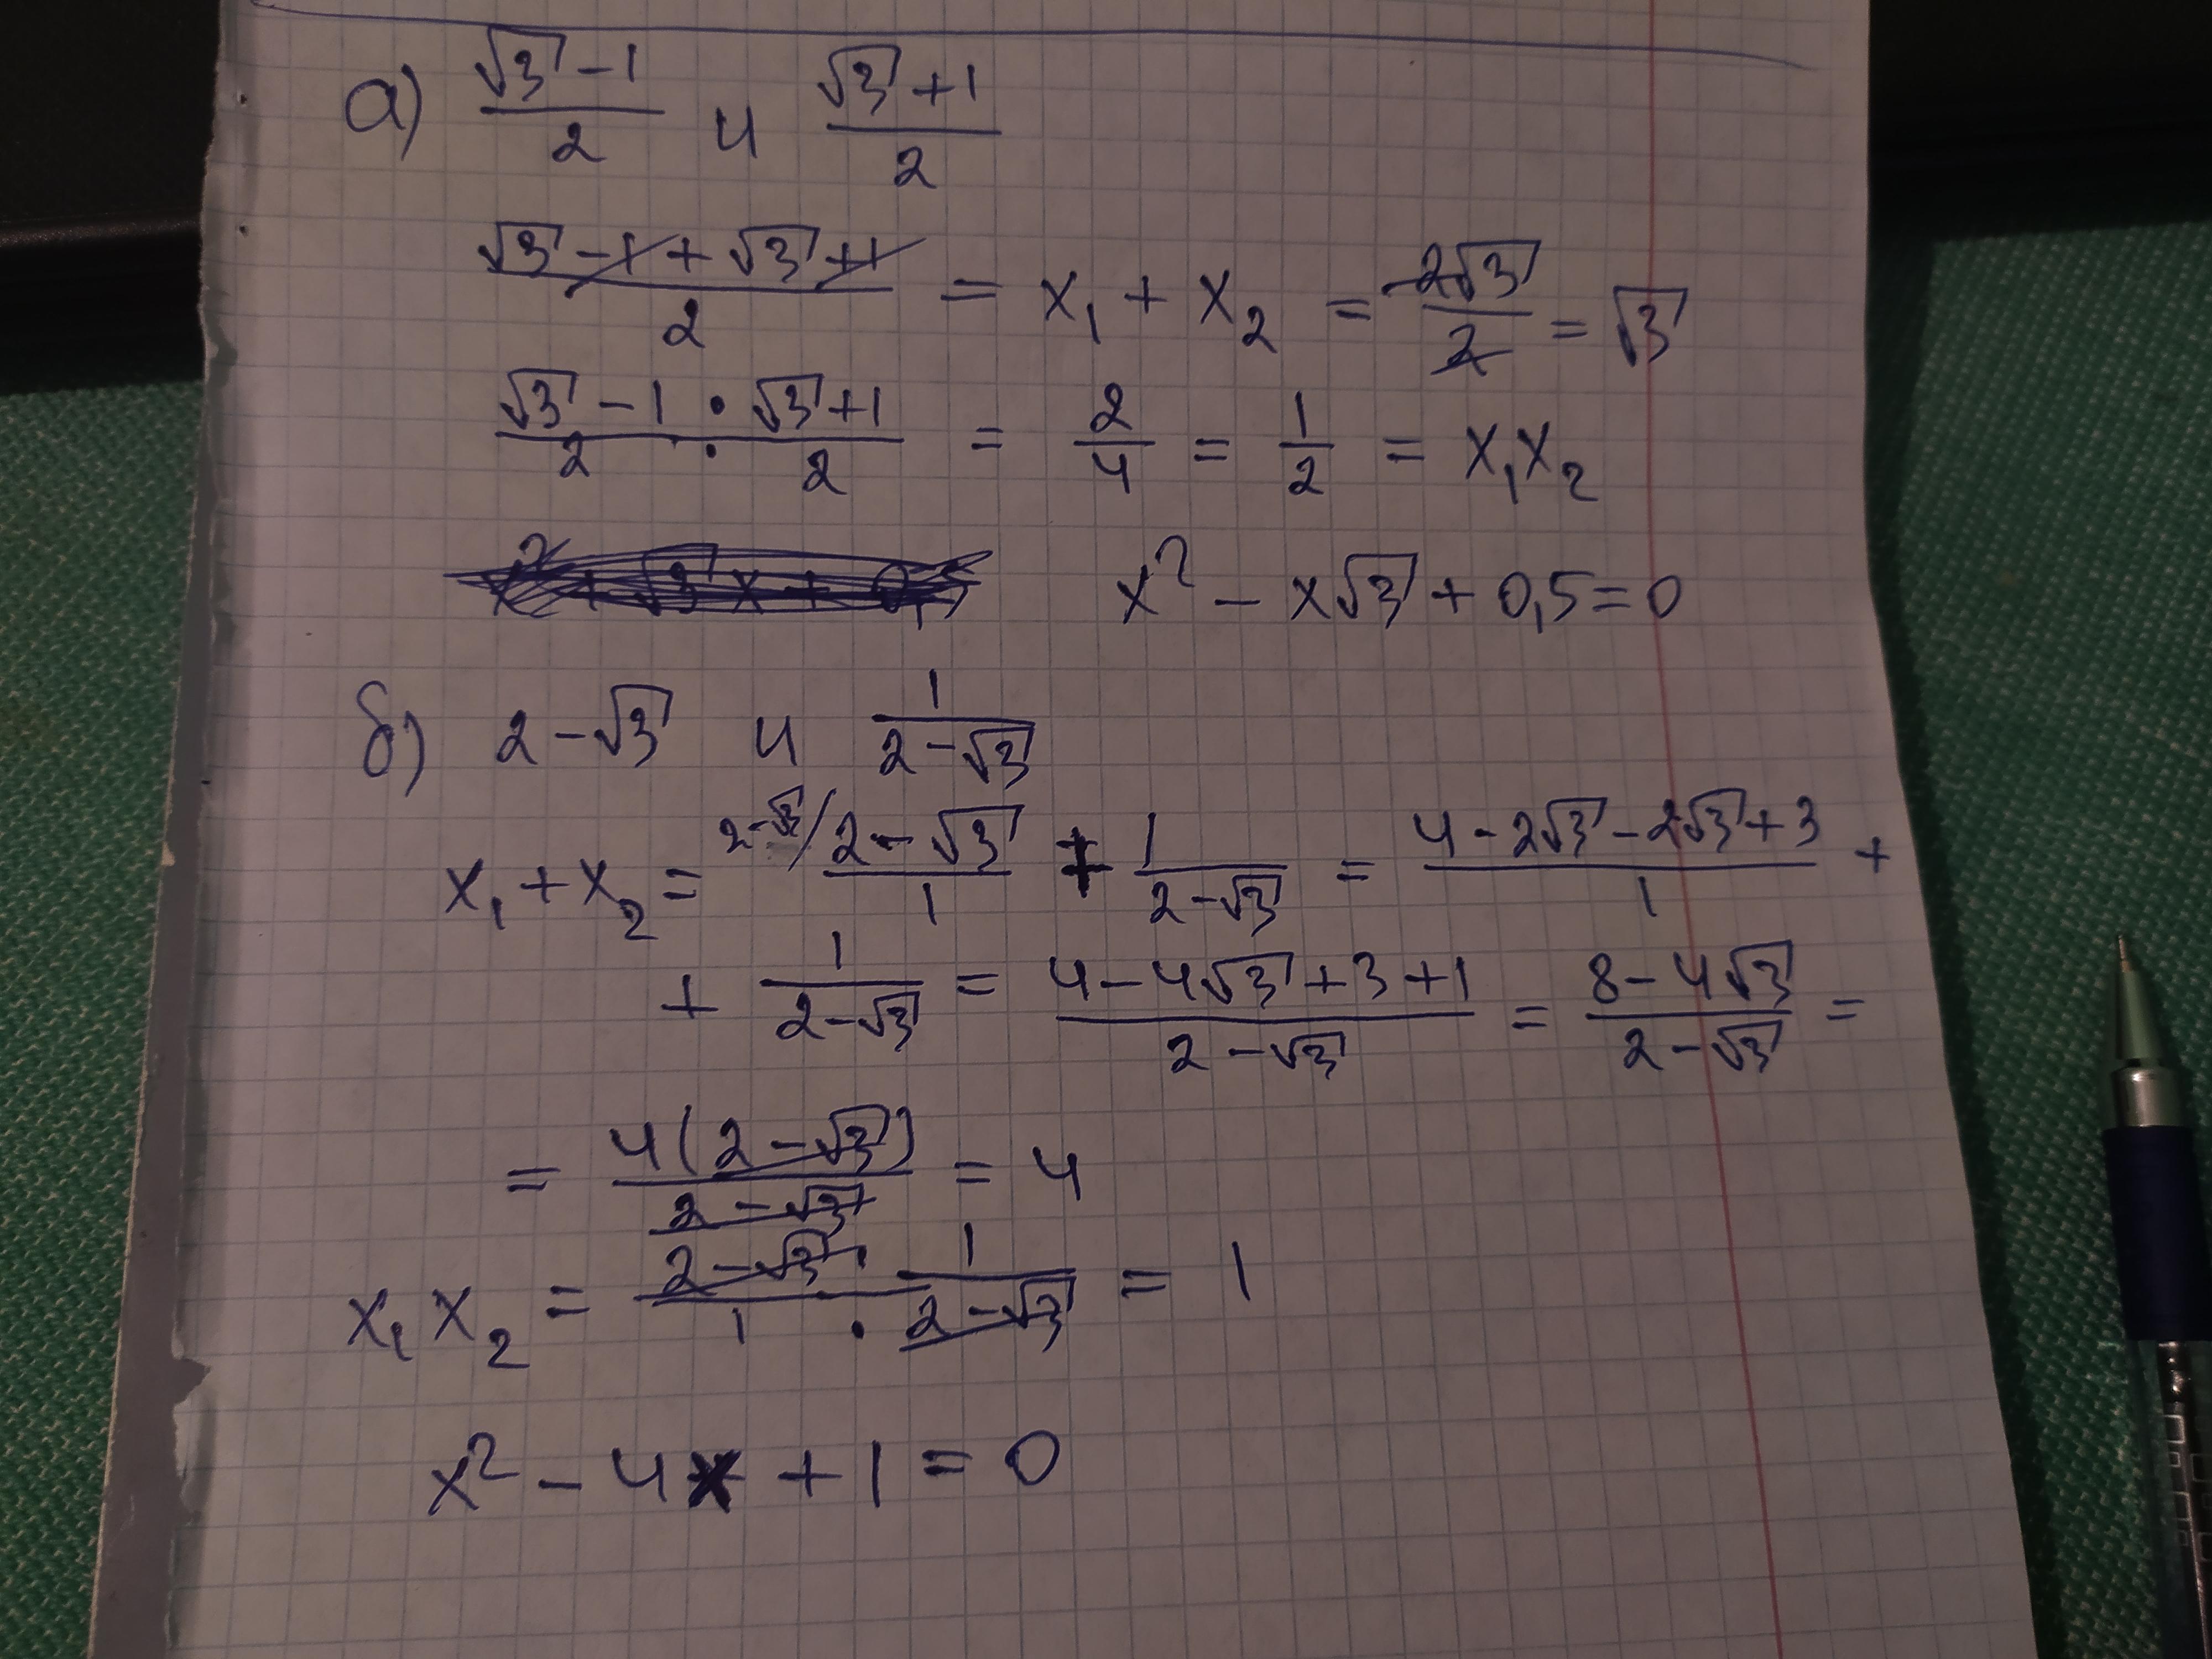 а) (√3 - 1)/2 и (√3 + 1)/2
(√3 - 1 + √3 + 1)/2 = x₁ + x₂ = 2√3/2 = √3
(√3 - 1)/2 · (√3 + 1)/2 = 2/4 = 1/2 = x₁x₂
x² - x√3 + 0,5 = 0
б) 2 - √3 и 1/(2 - √3)
x₁ + x₂ = ²⁻√³/ (2 - √3)/1 + 1/(2 - √3) = (4 - 2√3 - 2√3 + 3)/1 +
+ 1/(2 - √3) = (4 - 4√3 + 3 + 1)/(2 - √3) = (8 - 4√3)/(2 - √3) =
= 4(2 - √3)/(2 - √3) = 4
x₁x₂ = (2 - √3)/1 · 1/(2 - √3) = 1
x² - 4x + 1 = 0